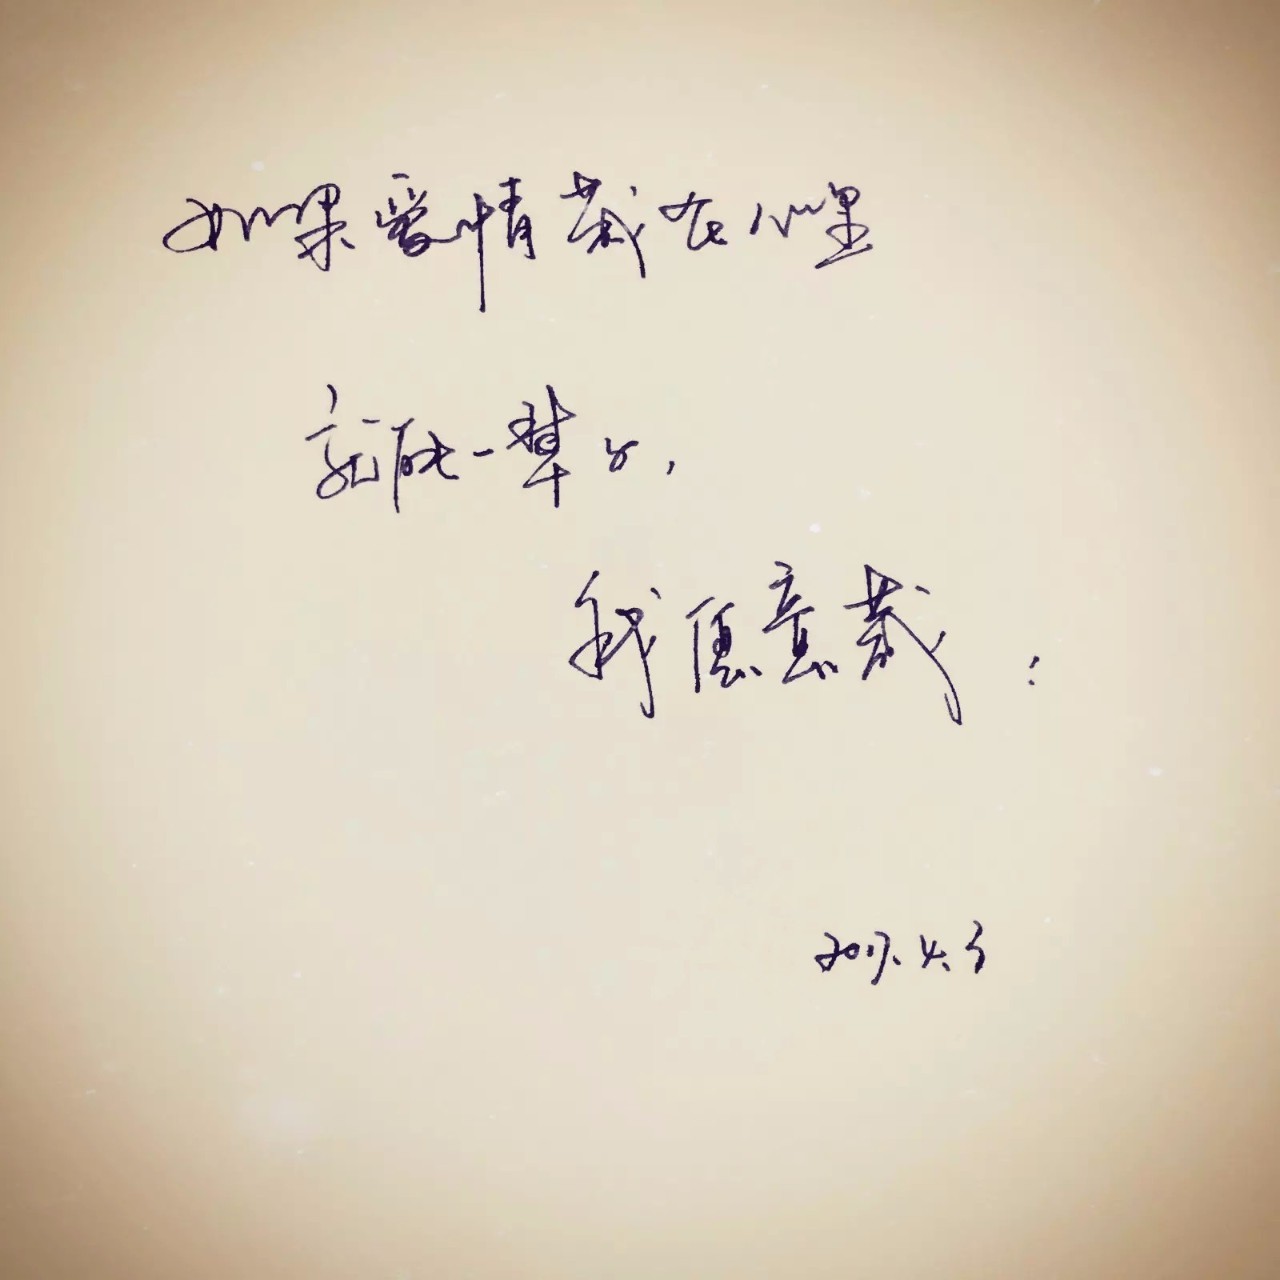 如果爱情藏在心里
就能一辈子,
我愿意藏!
2017.4.3